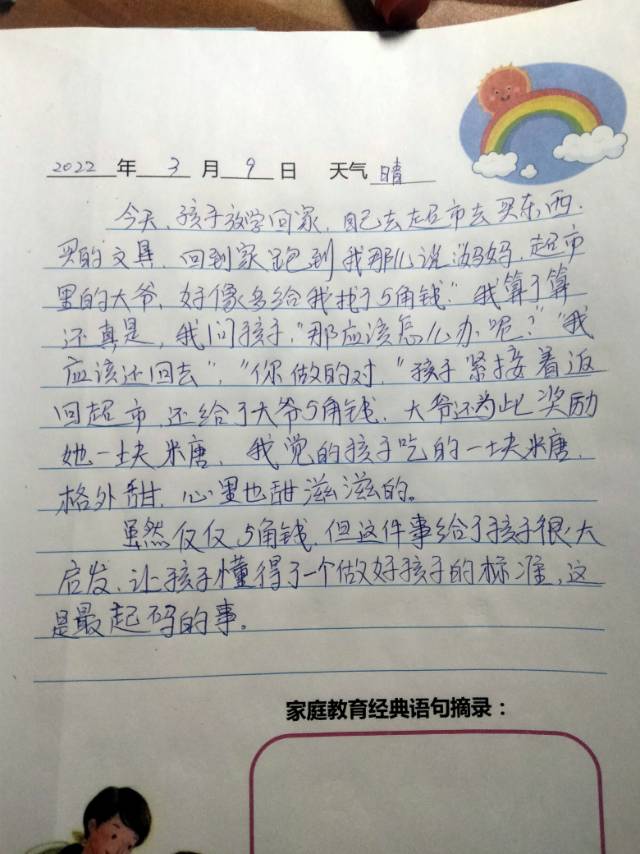 2022 年 3 月 9 日 天气 晴
今天，孩子放学回家，自己去超市去买东西，
买的文具，回到家跑到我那儿说"妈妈，超市
里的大爷，好像多给我找了5角钱"我算了算
还真是，我问孩子，"那应该怎么办呢？""我
应该还回去"，"你做的对，"孩子紧接着返
回超市，还给了大爷5角钱，大爷还为此奖励
她一块米唐，我觉的孩子吃的一块米唐，
格外甜，心里也甜滋滋的。
虽然仅仅5角钱，但这件事给了孩子很大
启发，让孩子懂得了一个做好孩子的标准，这
是最起码的事。
家庭教育经典语句摘录：